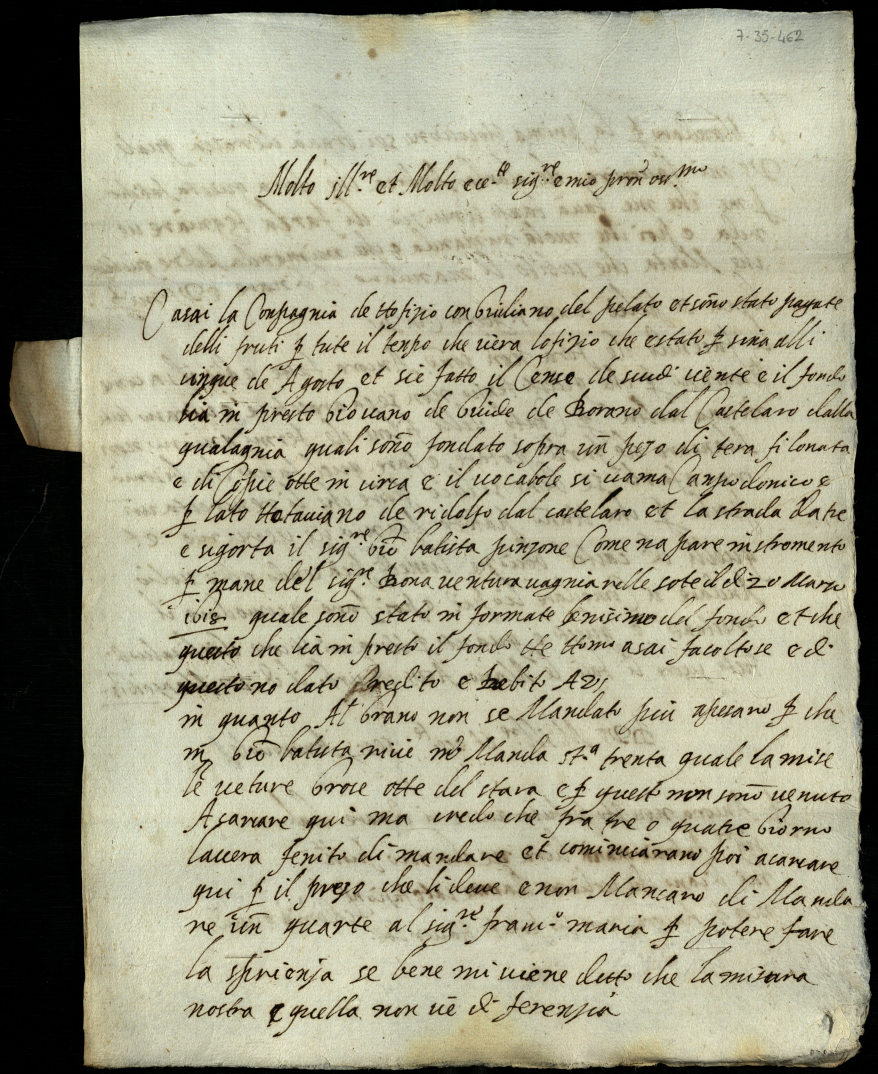 7-35-462
Molto ill.re et Molto ecc.te sig.re e mio pron oss.mo
Casai la Conpagnia de ttofizio con Giuliano del pelato et sono stato pagate
delli fruti p tute il tenpo che viera lofizio che estato p sina alli
cinque de Agosto et sie fatto il Cense de scudi viente e il fondo
lia in presto Giovano de Guide de Borano dal Castelaro dalla
qualagnia quali sono fondato sopra un pezo di tera filonata
e di Copie otte in circa e il vocabole si cama Canpo donico e
p lato ttotaviano de ridolfo dal castelaro et la strada date
e sigorta il sig.re Gio batista pinzone Come napare instromento
p mane del sig.re Bona ventura vagniarelle sote il di 20 Marzo
quale sono stato in formate benisimo del fondo et che
questo che lia in presto il fondo tte ttomo asai facoltose e di
questo no dato Credito e Debito
in quanto Al Grano non se Mandato piu apesaro p che
m Gio batista Manda st.a trenta quale la mise
le veture Grose otte del stara e p questo non sono venuto
A carcare qui ma credo che fra tre o quatre Giorno
lavera fenito di mandare et cominciarano poi acarcare
qui p il prezo che li deve e non Mancaro di Manda
re un quarte al sig.re fran.o maria p potere fare
la spirienza se bene mi viene detto che la misura
nostra e quella non ve di ferenzia